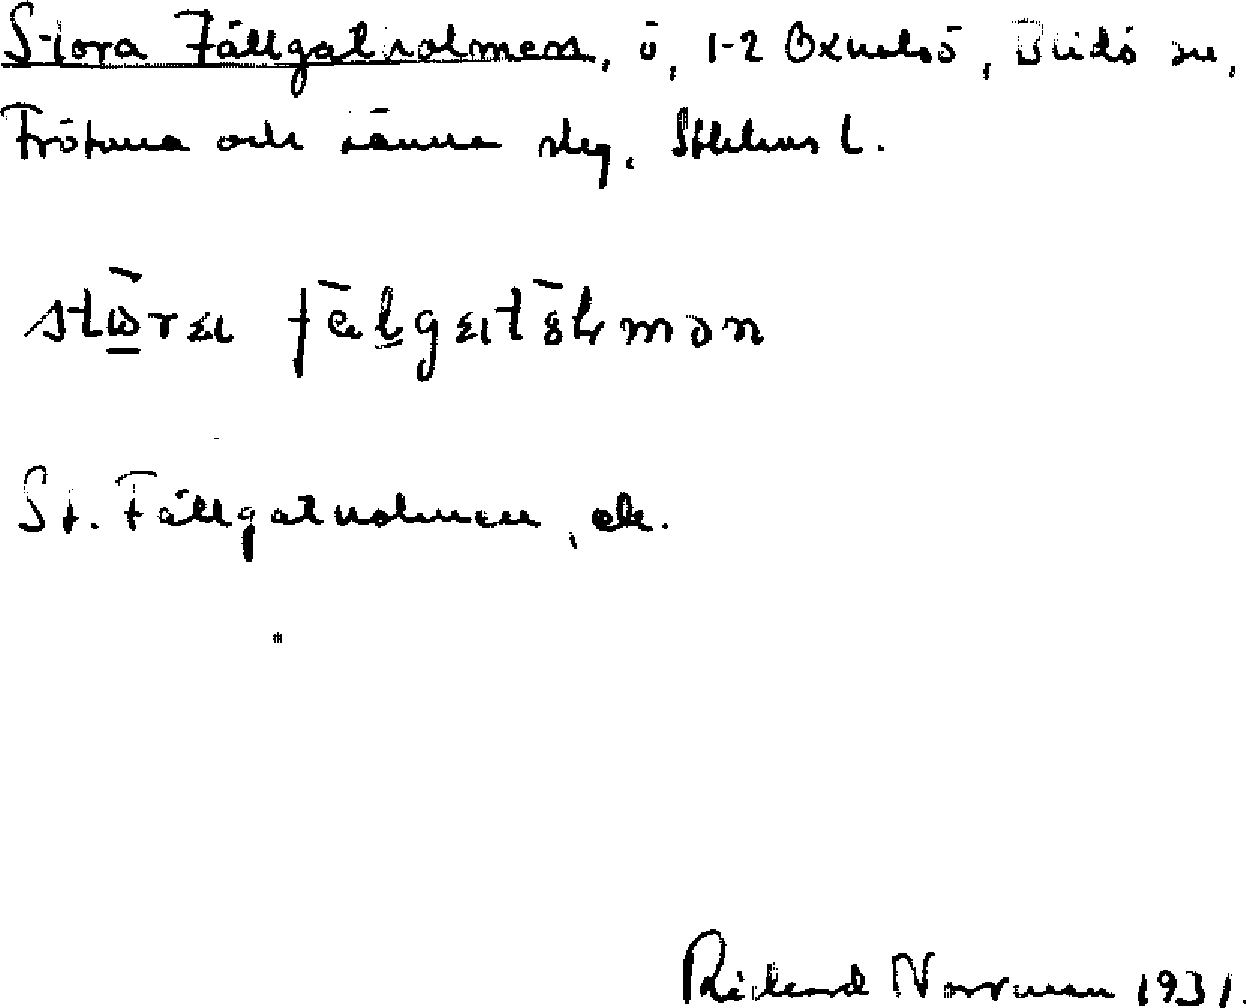 Stora Fällgatholmen, ö, 1-2 Oxhalsö, Blidö sn,
Frötuna och Länna slg, Sthlms l.
St. Fällgatholmen, ek.
Rickard Norrman 1931.